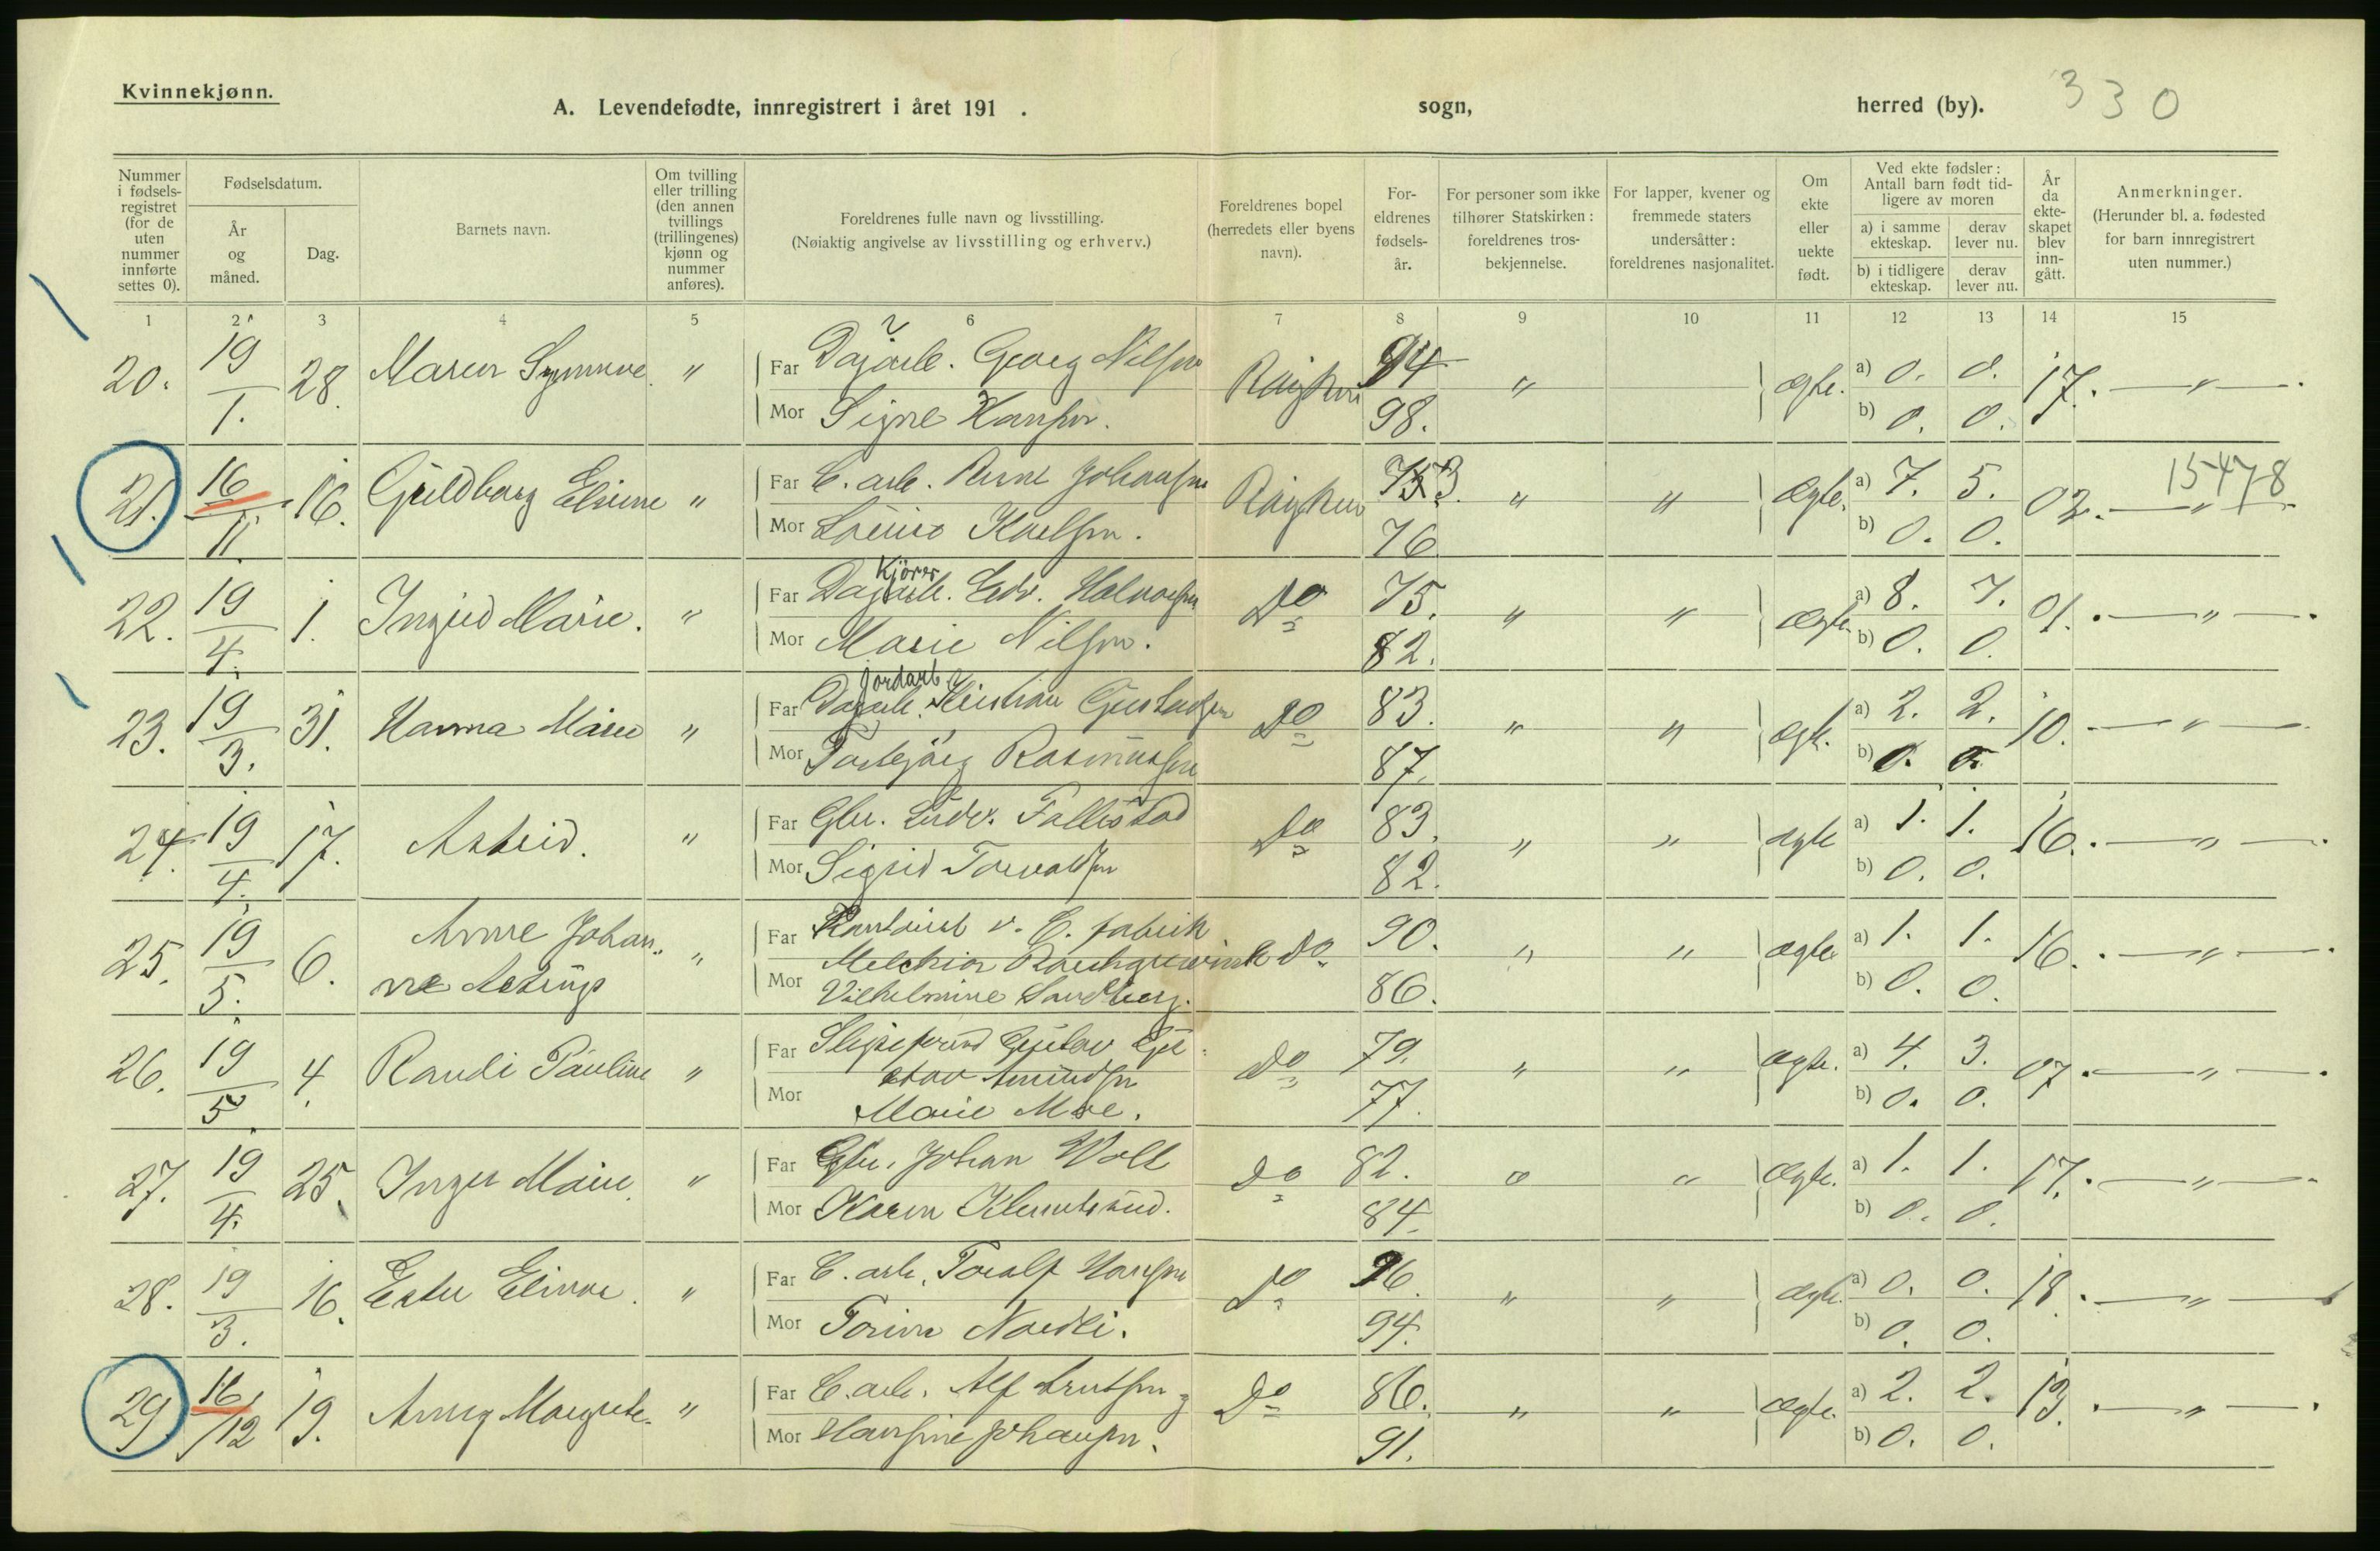 Kvinnekjønn.
A. Levendefødte, innregistrert i året 191 . sogn, herred (by). 330
Nummer i fødselsregistret (for de uten nummer innførte settes 0).
Fødselsdatum.
År og måned.
Dag.
Barnets navn.
Om tvilling eller trilling (den annen tvillings (trillingenes) kjønn og nummer anføres).
Foreldrenes fulle navn og livsstilling.
(Nøiaktig angivelse av livsstilling og erhverv.)
Foreldrenes bopel (herredets eller byens navn).
Foreldrenes fødselsår.
For personer som ikke tilhører Statskirken: foreldrenes trosbekjennelse.
For lapper, kvener og fremmede staters undersåtter: foreldrenes nasjonalitet.
Om ekte eller uekte født.
Ved ekte fødsler: Antall barn født tidligere av moren
a) i samme ekteskap. derav lever nu.
b) i tidligere ekteskap. derav lever nu.
År da ekteskapet blev inngått.
Anmerkninger.
(Herunder bl. a. fødested for barn innregistrert uten nummer.)
1 2 3 4 5 6 7 8 9 10 11 12 13 14 15
20. 19/1. 28. Maren Synnøve. " Far Dagarb. Georg Nilsen Røyken 94 " ægte. a) 0. 0. 17. — " —
Mor Signe Hansen. 98. b) 0. 0.
21. 16/11. 16. Guldborg Elvine " Far C. arb. Arne Johansen Røyken 73. " " Ægte. a) 7. 5. 02. — " — 15478
Mor Lovise Karlsen. 76 b) 0. 0.
Kjører
22. 19/4. 1. Ingrid Marie. " Far Dagarb. Edv. Halvorsen Do 75. " " Ægte a) 8. 7. 01. — " —
Mor Marie Nilsen. 82. b) 0. 0.
Jordarb
23. 19/3. 31. Hanna Marie " Far Dagarb. Kristian Gustavsen Do 83. " " Ægte. a) 2. 2. 10. — " —
Mor Torbjørg Rasmussen 87. b) 0. 0.
24. 19/4. 17. Astrid. " Far Gbr. Ludv. Follestad Do 83. " " ægte a) 1. 1. 16. — " —
Mor Sigrid Torvaldsen 82. b) 0. 0.
25. 19/5. 6. Anne Johan- " Far Kontorist v. C. fabrik 90. " " ægte a) 1. 1. 16. — " —
ne Mor Melchior Do
Vilhelmine Sandberg. 86. b) 0. 0.
26. 19/5. 4. Randi Pauline " Far Gustav Gu- Do 79. " " ægte. a) 4. 3. 07. — " —
stav Amundsen
Mor Marie Moe. 77. b) 0. 0.
27. 19/4. 25. Inger Marie. " Far Gbr. Johan Woll Do 82. " " Ægte. a) 1. 1. 17. — " —
Mor Karen Klemetsrud. 84. b) 0. 0.
28. 19/3. 16. Ester Elinor. " Far C. arb. Toralf Hansen Do 96. " " Ægte. a) 0. 0. 18. — " —
Mor Torine Nordli. 94. b) 0. 0.
29. 16/12 19. Anny Margrete. " Far C. arb. Alf Knutsen Do 86. " " Ægte. a) 2. 2. 13. — " —
Mor Hansine Johansen. 91. b) 0. 0.